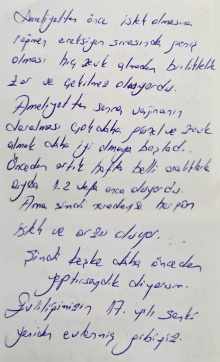 Ameliyetten önce istek olmasına
rağmen ereksiyon sırasında geniş
olması hiç zevk almadan birliktelik
zor ve çekilmez oluyordu.
Ameliyetten sonra vajinanın
daralması çok daha güzel ve zevk
almak daha iyi olmaya başladı.
Önceden artık hafta belli aralıklarla
ayda 1.2 defa anca oluyordu.
Ama şimdi neredeyse hergün
istek ve arzu oluyor.
Şimdi keşke daha önceden
yaptırsaydık diyorum.
Evliliğimizin 17. yılı sanki
yeniden evlenmiş gibiyiz.